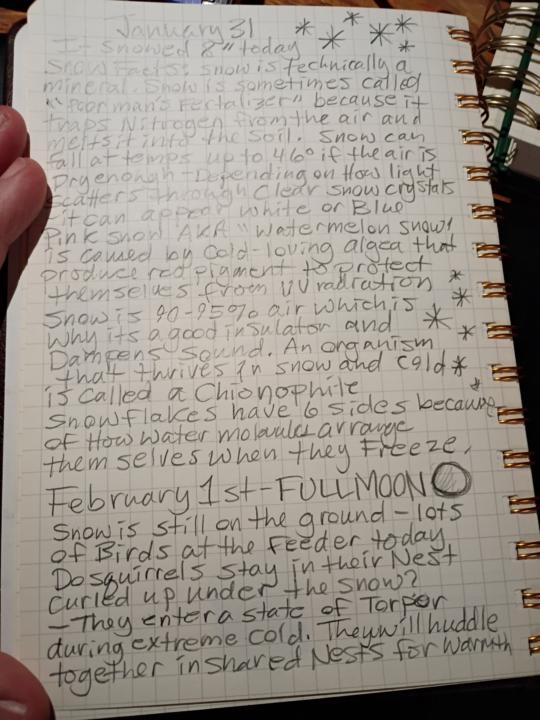 January 31
It snowed 8" today
Snow Facts: snow is technically a
mineral. Snow is sometimes called
"Poor man's Fertalizer" because it
traps Nitrogen from the air and
melts it into the soil. Snow can
fall at temps up to 46° if the air is
Dry enough - Depending on How light
scatters through clear snow crystals
it can appear white or Blue
Pink snow AKA "watermelon snow"
is caused by cold-loving algea that
produce red pigment to protect
themselves from UV radiation
Snow is 90-95% air which is
why its a good insulator and
Dampens sound. An organism
that thrives in snow and cold
is called a Chionophile
Snowflakes have 6 sides because
of How water molecules arrange
themselves when they Freeze.
February 1st - FULL MOON
Snow is still on the ground - lots
of Birds at the Feeder today
Do squirrels stay in their Nest
curled up under the snow?
- They enter a state of Torpor
during extreme cold. They will huddle
together in shared Nests for warmth